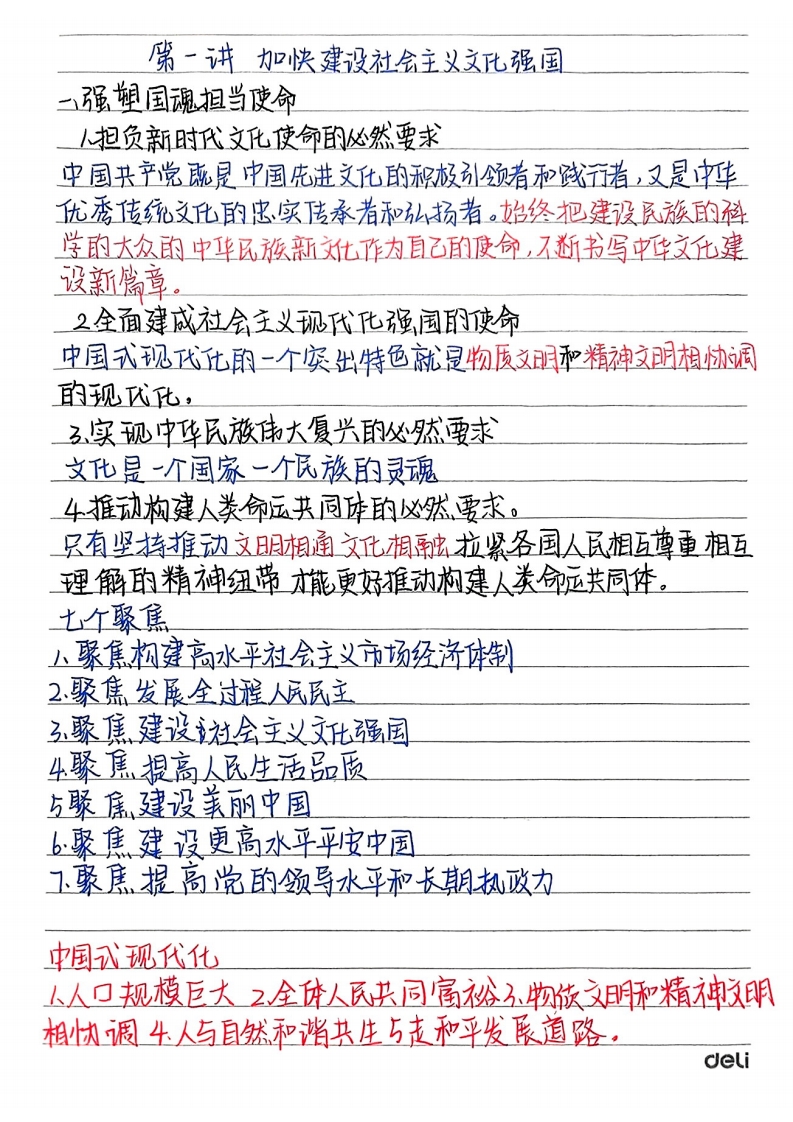 第一讲 加快建设社会主义文化强国
一、强塑国魂担当使命
1.担负新时代文化使命的必然要求
中国共产党既是中国先进文化的积极引领者和践行者,又是中华
优秀传统文化的忠实传承者和弘扬者。始终把建设民族的科
学的大众的中华民族新文化作为自己的使命,不断书写中华文化建
设新篇章。
2.全面建成社会主义现代化强国的使命
中国式现代化的一个突出特色就是物质文明和精神文明相协调
的现代化。
3.实现中华民族伟大复兴的必然要求
文化是一个国家一个民族的灵魂
4.推动构建人类命运共同体的必然要求。
只有坚持推动文明相通文化相融拉紧各国人民相互尊重相互
理解的精神纽带才能更好推动构建人类命运共同体。
七个聚焦
1.聚焦构建高水平社会主义市场经济体制
2.聚焦发展全过程人民民主
3.聚焦建设社会主义文化强国
4.聚焦提高人民生活品质
5聚焦建设美丽中国
6.聚焦建设更高水平平安中国
7.聚焦提高党的领导水平和长期执政力
中国式现代化
1.人口规模巨大 2.全体人民共同富裕3.物质文明和精神文明
相协调 4.人与自然和谐共生5走和平发展道路。
deli